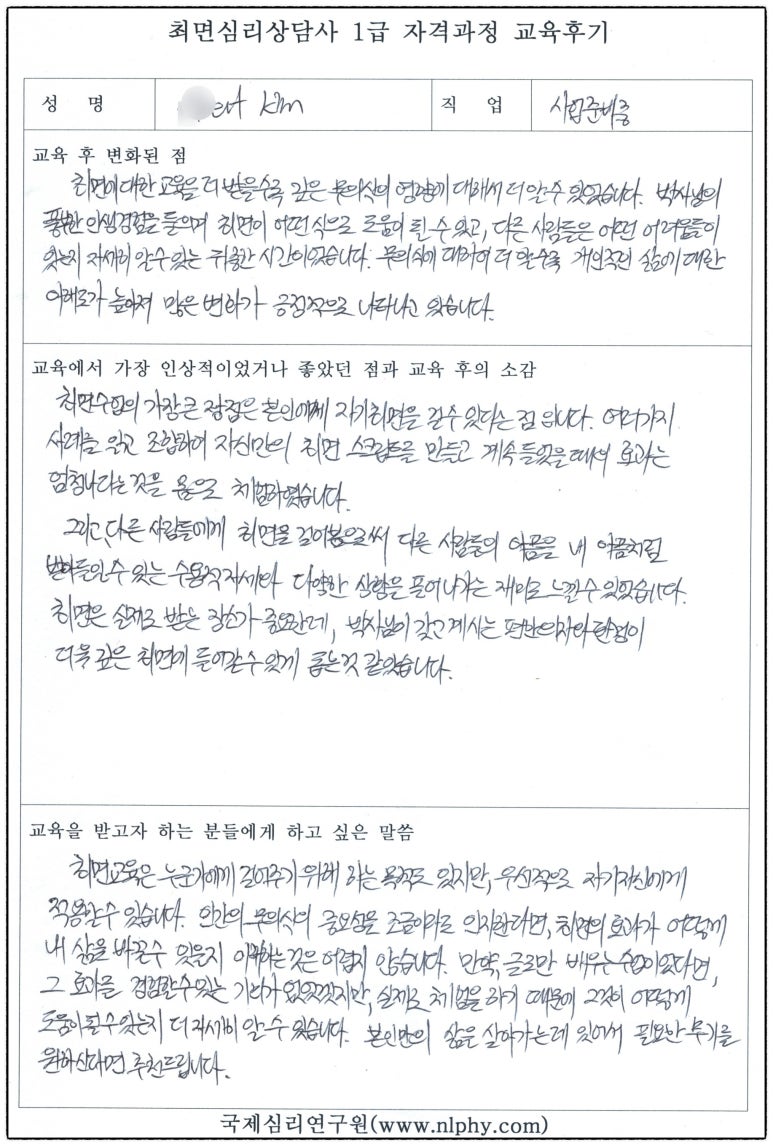 최면심리상담사 1급 자격과정 교육후기
성 명 ert kim 직 업 사업준비중
교육 후 변화된 점
최면에 대한 교육을 더 받을수록 깊은 무의식의 영향에 대해서 더 알 수 있었습니다. 박사님의
풍부한 인생경험을 들으며 최면이 어떤 식으로 도움이 될 수 있고, 다른 사람들은 어떤 어려움들이
있는지 자세히 알 수 있는 뜻깊은 시간이었습니다. 무의식에 대하여 더 알수록 개인적인 삶에 대한
이해도가 높아져 많은 변화가 긍정적으로 나타나고 있습니다.
교육에서 가장 인상적이었거나 좋았던 점과 교육 후의 소감
최면수업의 가장 큰 장점은 본인에게 자기최면을 걸 수 있다는 점 입니다. 여러가지
사례를 읽고 조합하여 자신만의 최면 스크립트를 만들고 계속 들었을 때의 효과는
엄청나다는 것을 몸으로 체험하였습니다.
그리고, 다른 사람들에게 최면을 걸어봄으로써 다른 사람들의 아픔을 내 아픔처럼
받아들일 수 있는 수용적 자세와 다양한 상황을 풀어나가는 재미도 느낄 수 있었습니다.
최면은 실제로 받는 장소가 중요한데, 박사님이 갖고 계시는 편안한 의자와 환경이
더욱 깊은 최면에 들어갈 수 있게 돕는 것 같았습니다.
교육을 받고자 하는 분들에게 하고 싶은 말씀
최면교육은 누군가에게 걸어주기 위해 하는 목적도 있지만, 우선적으로 자기자신에게
적용할 수 있습니다. 인간의 무의식의 중요성을 조금이라도 인지한다면, 최면의 효과가 어떻게
내 삶을 바꿀 수 있을지 이해하는 것은 어렵지 않습니다. 만약, 글로만 배우는 수업이었다면,
그 효과를 경험할 수 있는 기회가 없었겠지만, 실제로 체험을 하기 때문에 그것이 어떻게
도움이 될 수 있는지 더 자세히 알 수 있습니다. 본인만의 삶을 살아가는데 있어서 필요한 무기를
원하신다면 추천드립니다.
국제심리연구원(www.nlphy.com)